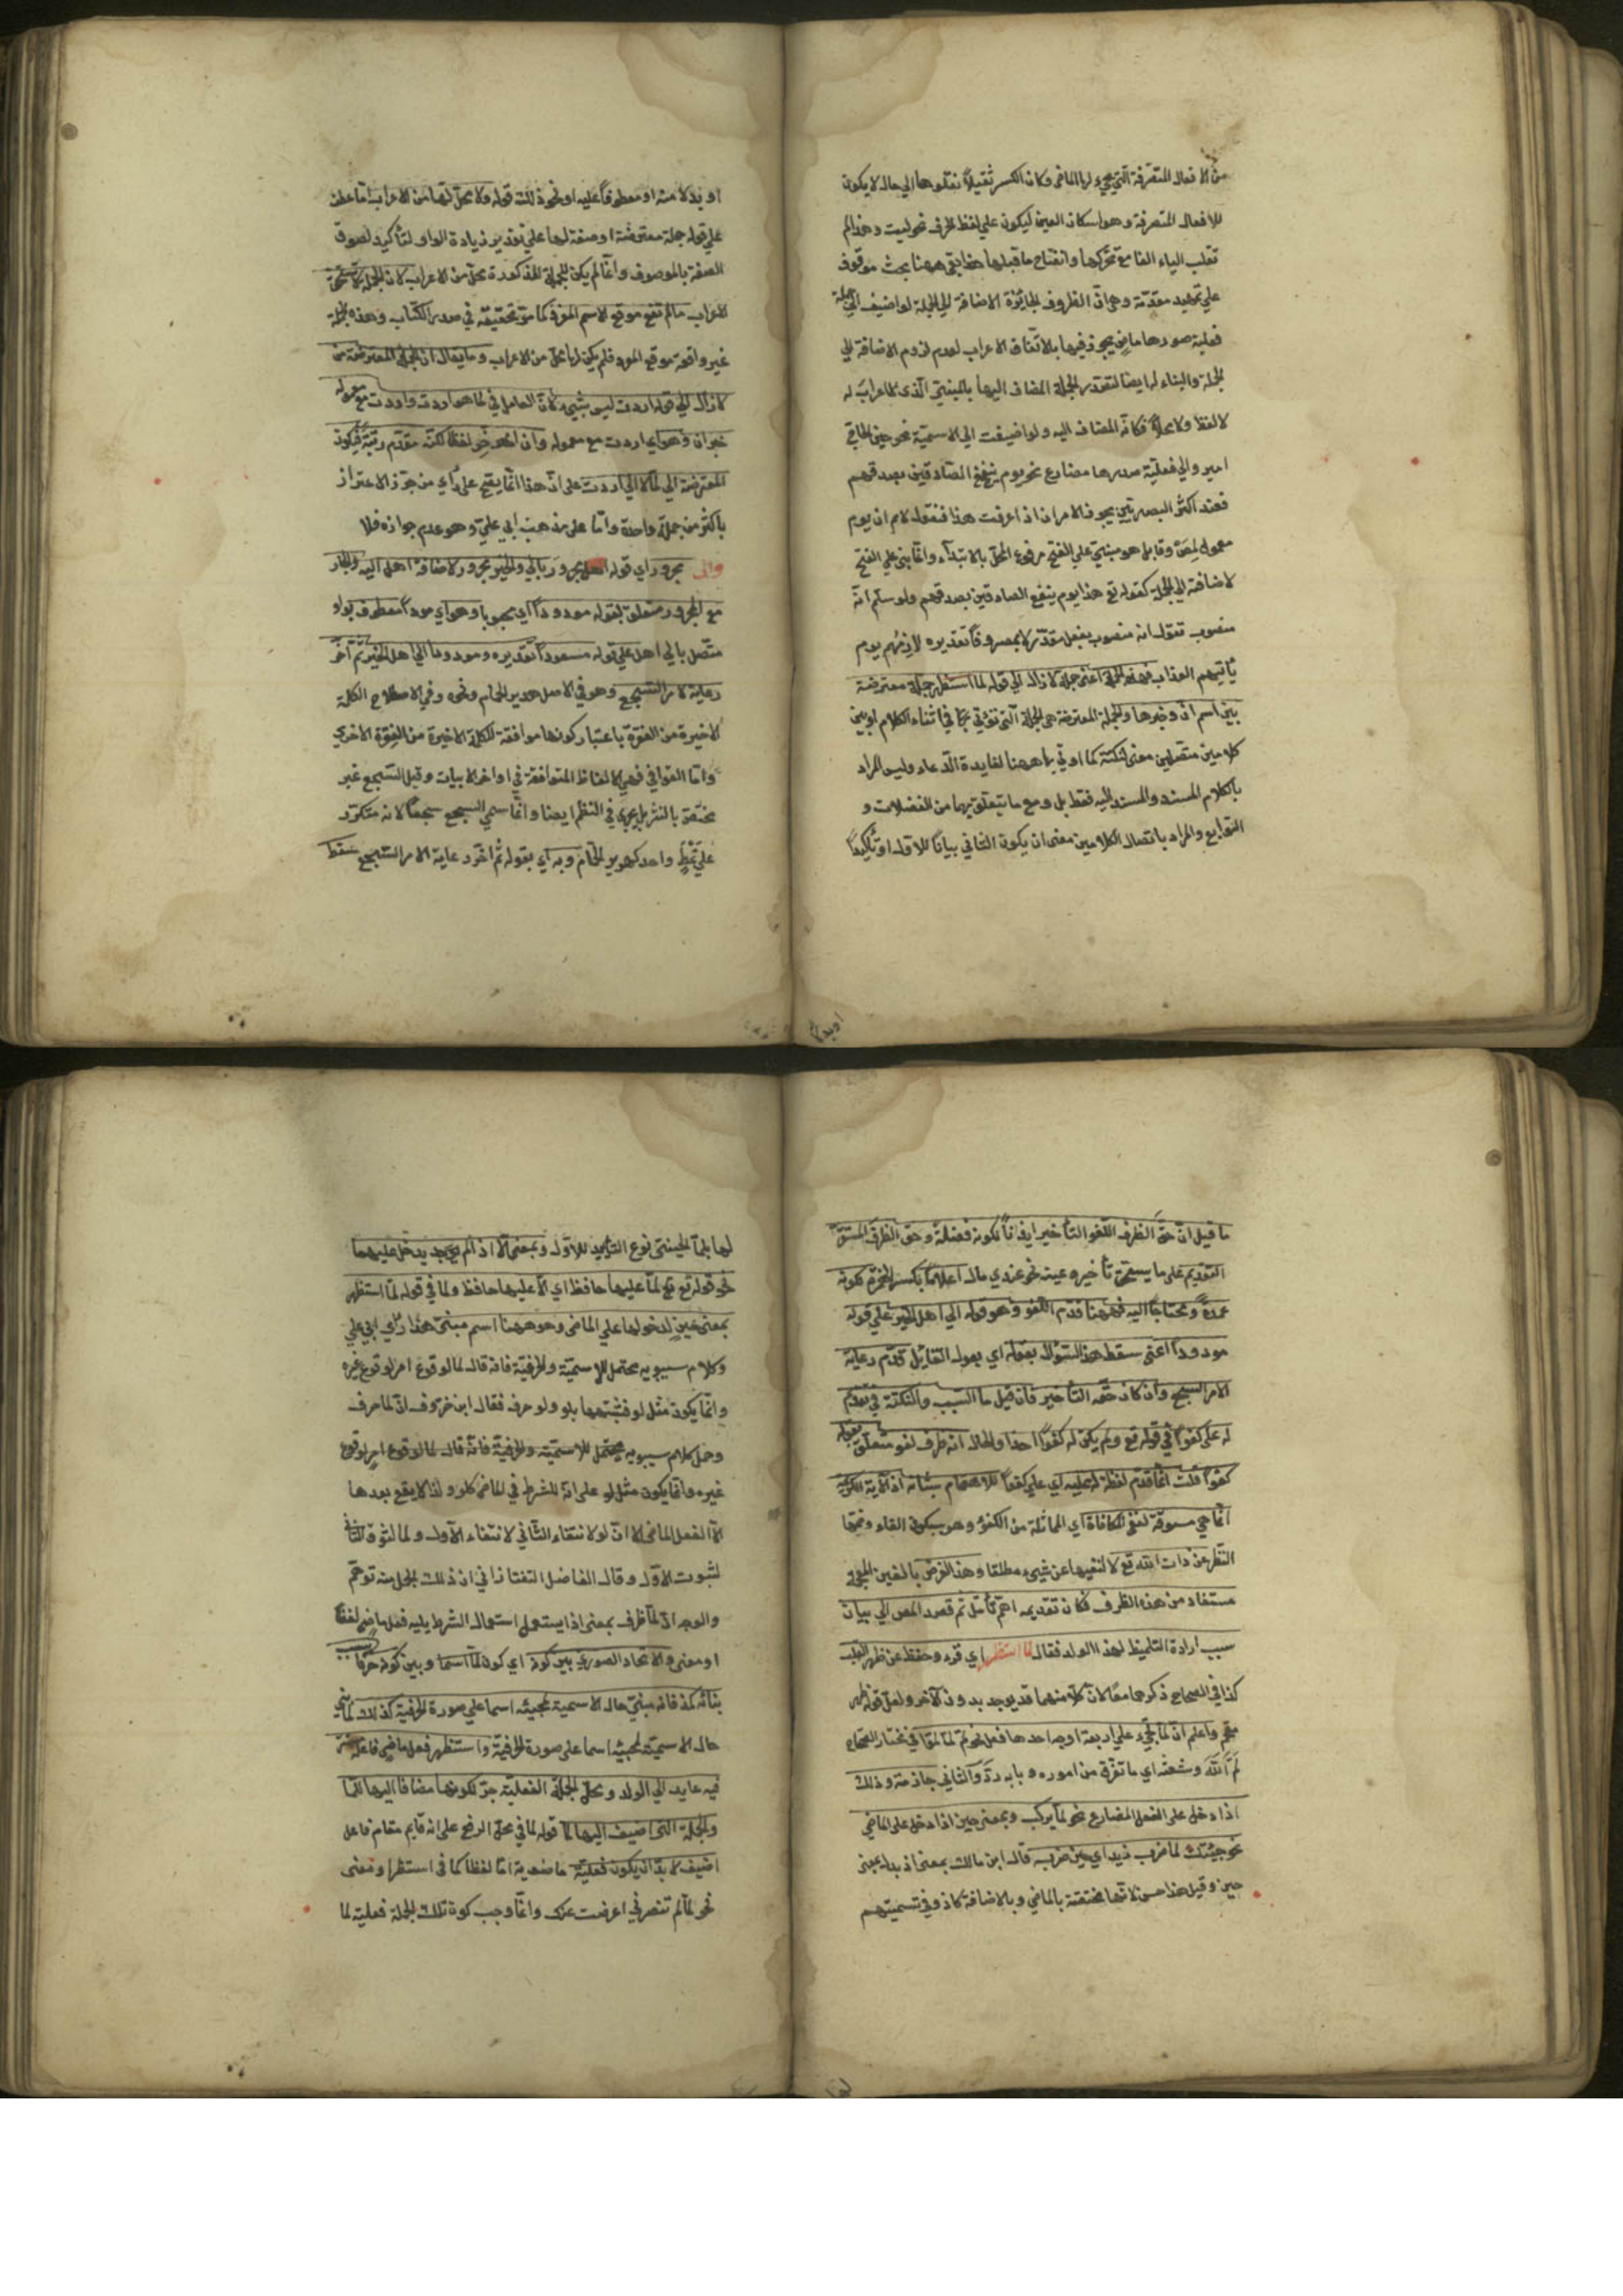 من الافعال المتصرفة التي يجيء لها الماضي وكان الكسر ثقيلاً نقلوها الي حال لا يكون
للافعال المتصرفة وهو اسكان العين ليكون علي لفظ الحرف نحو ليت وهذا لم
تقلب الياء الفا مع تحركها وانفتاح ما قبلها هذا بقي ههنا بحث موقوف
علي تمهيد مقدمة وهي ان الظروف الجايزة الاضافة الي الجملة لو اضيف الي جملة
فعلية صدرها ماض يجوز فيها بالاتفاق الاعراب لعدم لزوم الاضافة الي
الجملة والبناء لها ايضا لتصدر الجملة المضاف اليها بالمبني الذي لا اعراب له
لا لفظا ولا محلا فكانه المضاف اليه ولو اضيفت الي الاسمية نحو حين الحاج
امير والي فعلية صدرها مضارع نحو يوم ينفع الصادقين صدقهم
فعند اكثر البصريين يجوز الامران اذا عرفت هذا فنقول لام ان يوم
معمول لمصروفا بل هو مبني علي الفتح مرفوع المحل بالابتداء وانما بني علي الفتح
لاضافته الي الجملة كقوله تع هذا يوم ينفع الصادقين صدقهم ولو سلم انه
منصوب نقول انه منصوب بفعل مقدر لا بمصروفا تقديره لازمهم يوم
يأتيهم العذاب فهذه الجملة اعني جملة لا زال الي قوله لما استظهر جملة معترضة
بين اسم ان وخبرها والجملة المعترضة هي الجملة التي تؤتي بها في اثناء الكلام او بين
كلامين متصلين معني لنكتة كما اوتي بها ههنا لفايدة الدعاء وليس المراد
بالكلام المسند والمسند اليه فقط بل ومع ما يتعلق بهما من الفضلات و
التوابع والمراد باتصال الكلامين معني ان يكون الثاني بيانا للاول او تأكيدا
او بدلا منه او معطوفا عليه او نحو ذلك قوله ولا محل لها من الاعراب اما عطف
علي قوله جملة معترضة او صفة لها علي تقدير زيادة الواو لتأكيد لصوق
الصفة بالموصوف وانما لم يكن للجملة المذكورة محل من الاعراب لان الجملة لا تستحق
الاعراب ما لم تقع موقع الاسم المفرد كما مر تحقيقه في صدر الكتاب وهذه الجملة
غير واقعة موقع المفرد فلم يكن لها محل من الاعراب وما يقال ان الجملة المعترضة من
لا زال الي قوله اردت ليس بشيء لان العامل في لما هو اردت واردت مع معموله
خبر ان وهو اي اردت مع معموله وان اخر لفظا لكنه مقدم رتبة فيكون
المعترضة الي لما لا الي اردت علي ان هذا انما يقع علي رأي من جوز الاعتراض
باكثر من جملة واحدة واما علي مذهب ابي علي وهو عدم جوازه فلا
والي مجرور اي قوله اهل مجرور بالي والخير مجرور لاضافة اهل اليه والجار
مع المجرور متعلق بقوله مودودا اي محبوبا وهو اي مودا معطوف بواو
متصل بالي اهل علي قوله مسعودا تقديره ومودودا الي اهل الخير ثم اخر
رعاية لامر التسجيع وهو في الاصل هدير الحمام ونحوه وفي الاصطلاح الكلمة
الاخيرة من الفقرة باعتبار كونها موافقة للكلمة الاخيرة من الفقرة الاخري
واما القوافي فهي الالفاظ المتوافقة في اواخر الابيات وقيل التسجيع غير
مختص بالنثر بل يجري في النظم ايضا وانما سمي السجع سجعا لانه متكرر
علي نمط واحد كهدير الحمام وبه اي بقوله ثم اخر رعاية لامر التسجيع سقط
ما قيل ان حق الظرف اللغو التأخير ايذانا لكونه فضلة وحق الظرف المستقر
التقديم علي ما يستحق تأخيره عينه نحو عندي مال اعلاما بكسر الهمزة كونه
عمدة ومحتاجا اليه فههنا قدم اللغو وهو قوله الي اهل الخير علي قوله
مودودا اعني سقط هذا السؤال بقوله اي بقول القائل قدم رعاية
لامر السجع وان كان حقه التأخير فان قيل ما السبب والنكتة في تقديم
له علي كفوا في قوله تع ولم يكن له كفوا احد والحال انه ظرف لغو متعلق بقوله
كفوا قلت انما قدم لفظة له عليه اي علي كفوا للاهتمام بشانه اذ الآية الكريمة
انما هي مسوقة لنفي المكافاة اي المماثلة من الكفو وهو بسكون الفاء وضمها
النظير عن ذات الله تع لا لنفيها عن شيء مطلقا وهذا الغرض بالغين المعجمة
مستفاد من هذه الظرف فكان تقديمه اهم تأمل ثم قصد المص الي بيان
سبب ارادة التلميظ لهذا الولد فقال لما استظهر اي قرء وحفظ عن ظهر القلب
كذا في الصحاح ذكرهما معا لان كلا منهما قد يوجد بدون الآخر ولعل قوله ظهر
مقحم واعلم ان لما يجيء علي اربعة اوجه احدها فعل نحو لم لما لموا في مختار الصحاح
لم الله وشعثه اي ما تفرق من اموره وبابه رد والثاني جازمة وذلك
اذا دخل علي الفعل المضارع نحو لما يركب وبمعني حين اذا دخل علي الماضي
نحو جئتك لما ضرب زيد اي حين ضرب قال ابن مالك بمعني اذ بدل بمعني
حين وقيل هذا حسن لانها مختصة بالماضي وبالاضافة كاذ وفي تسميتهم
لها بلما الحينية نوع التأييد للاول وبمعني الا اذا لم يوجد يدخل عليهما
نحو قوله تع لما عليها حافظ اي الا عليها حافظ ولما في قوله لما استظهر
بمعني حين لدخولها علي الماضي وهو ههنا اسم مبني هذا رأي ابي علي
وكلام سيبويه محتمل للاسمية والحرفية فانه قال لما لوقوع امر لوقوع غيره
وانما يكون مثل لو فشبهها بلو ولو حرف فقال ابن خروف ان لما حرف
وحمل كلام سيبويه محتمل للاسمية والحرفية فانه قال لما لوقوع امر لوقوع
غيره وانما يكون مثل لو علي انه للشرط في الماضي كلو ولذا لا يقع بعدها
الا الفعل الماضي الا ان لو لانتفاء الثاني لانتفاء الاول ولما لثبوت الثاني
لثبوت الاول وقال الفاضل التفتازاني ان ذلك الحمل منه توهم
والوجه ان لما ظرف بمعني اذا يستعمل استعمال الشرط يليه فعل ماض لفظا
او معني والاتحاد الصوري بين كونه اي كون لما اسما وبين كونه حرفا سبب
بنائه كمذ فانه مبني حال الاسمية لمجيئه اسما علي صورة الحرفية كذلك لما بني
حال الاسمية لمجيئه اسما علي صورة الحرفية واستظهر فعل ماضي فاعله مستتر
فيه عايد الي الولد ومحل الجملة الفعلية جر لكونها مضافا اليها للما
والجملة التي اضيف اليها لما قوله لما في محل الرفع علي انه قايم مقام فاعل
اضيف لا بد ان يكون فعلية ماضوية اما لفظا كما في استظهر او معني
نحو لما لم تنصرني اعرضت عنك وانما وجب كون تلك الجملة فعلية لما